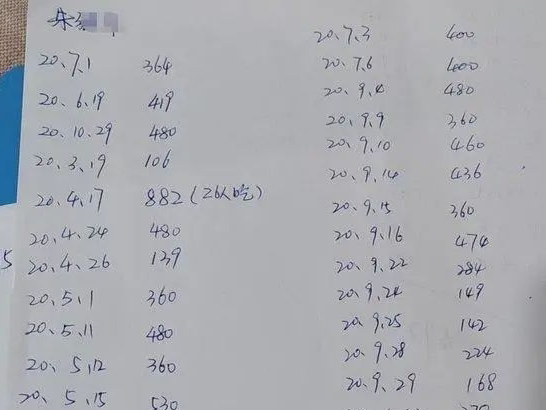 朱
20、7、1 364
20、6、19 419
20、10、29 480
20、3、19 106
20、4、17 882(26人吃)
20、4、24 480
5
20、4、26 139
20、5、1 360
20、5、11 480
20、5、12 360
20、5、15 530
20、7、3 400
20、7、6 400
20、9、4 480
20、9、9 360
20、9、10 460
20、9、14 436
20、9、15 360
20、9、16 474
20、9、22 284
20、9、24 149
20、9、25 142
20、9、28 224
20、9、29 168